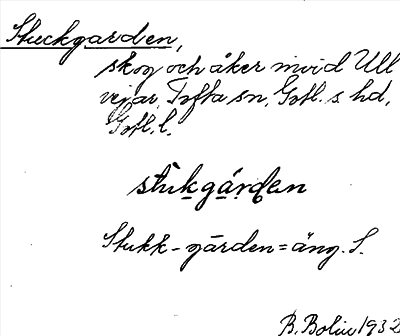 Stuckgarden,
skog och åker invid Ull
vejar, Tofta sn, Gotl. s hd,
Gotl. l.
stukgárden
Stukk-gården = äng. S.
B. Bolin 1932